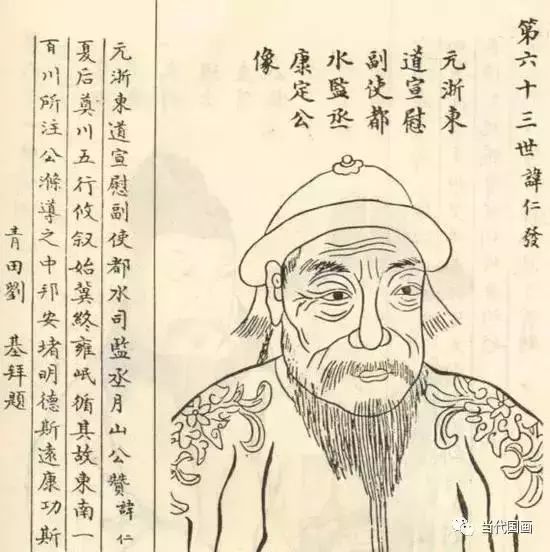 第六十三世諱仁發
元浙東
道宣慰
副使都
水監丞
康定公
像
元浙東道宣慰副使都水司監丞月山公贊諱仁
夏后奠川五行攸叙始冀終雍岷循其故東南一
百川所注公滌導之中邦安堵明德斯遠康功斯
青田劉 基拜題
当代国画